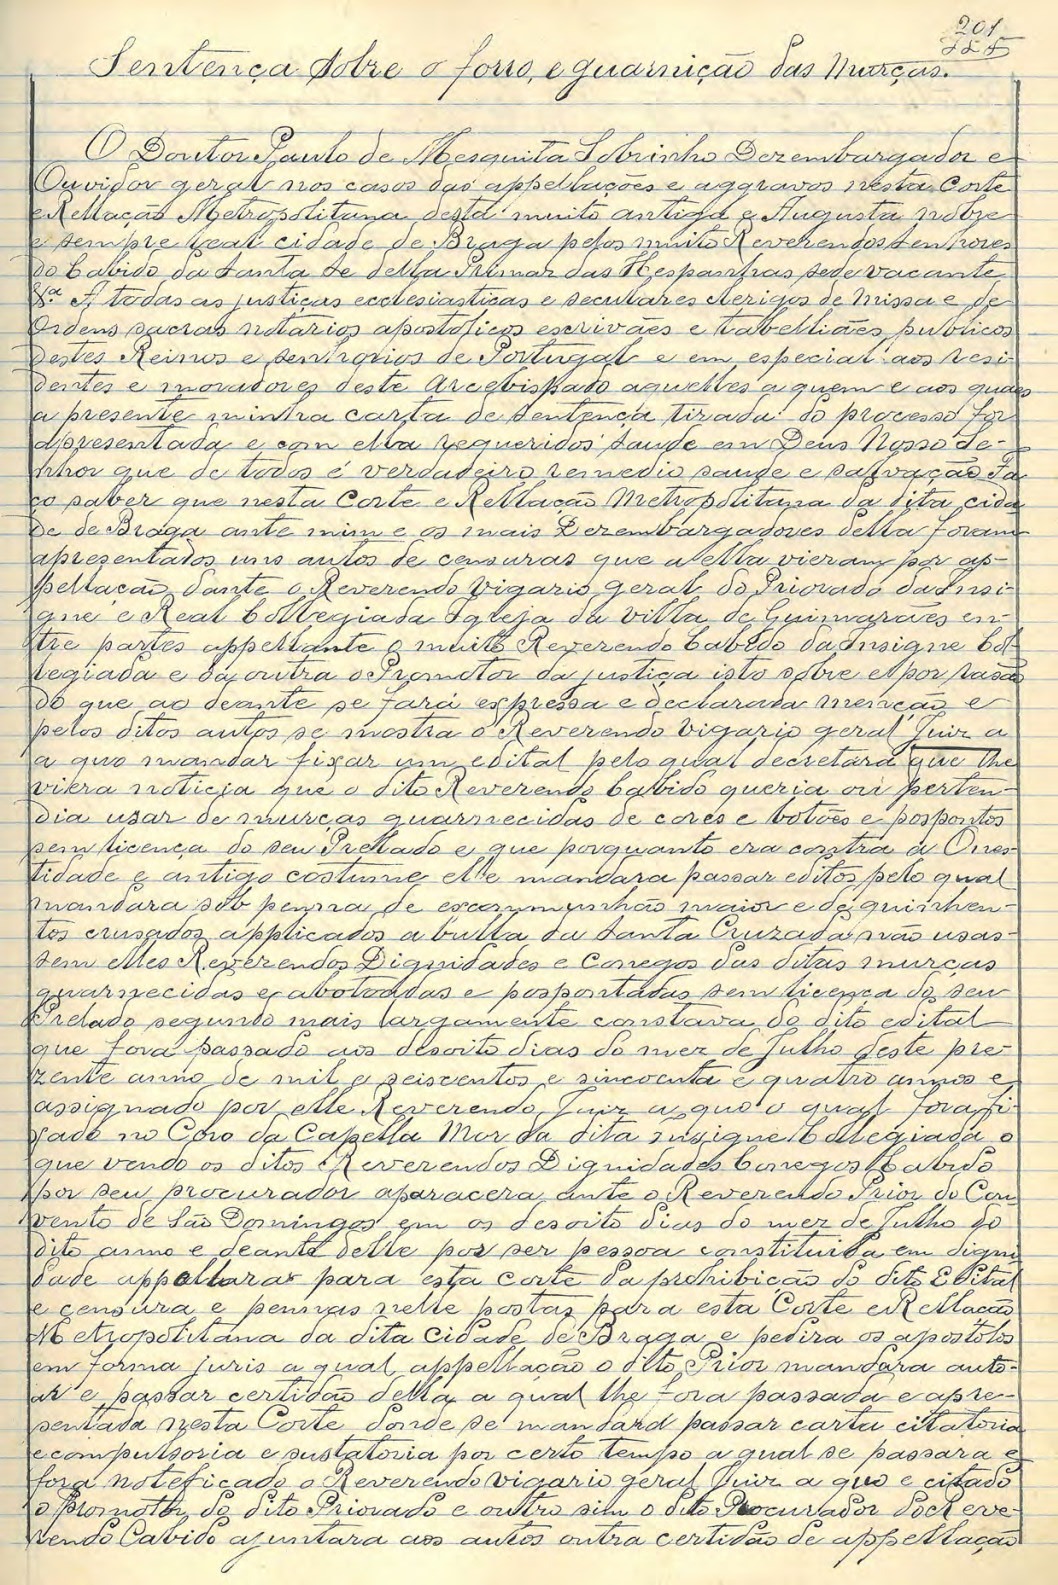 201
Sentença sobre o forro, e guarnição das Murças.
O Doutor Paulo de Mesquita Sobrinho Dezembargador e
Ouvidor geral nos casos das appellações e aggravos nesta Corte
e Rellação Metropolitana desta muito antiga e Augusta nobre
e sempre leal cidade de Braga pelos muito Reverendos Senhores
do Cabido da Santa Se della Primaz das Hespanhas sede vacante
&.ª A todas as justiças ecclesiasticas e seculares clerigos de missa e de
Ordens sacras notarios apostolicos escrivães e tabelliães publicos
destes Reinos e senhorios de Portugal e em especial aos resi-
dentes e moradores deste Arcebispado aquelles a quem e aos quaes
a presente minha carta de sentença tirada do processo for
apresentada e com ella requeridos saude em Deus Nosso Se-
nhor que de todos é verdadeiro remedio saude e salvação Fa-
ço saber que nesta Corte e Rellação Metropolitana da dita cida
de de Braga ante mim e os mais Dezembargadores della foram
apresentados uns autos de censuras que a ella vieram por ap-
pellação dante o Reverendo Vigario geral do Priorado da Insi-
gne e Real Collegiada Igreja da villa de Guimarães en-
tre partes appellante o muito Reverendo Cabido da Insigne Col-
legiada e da outra o Promotor da justiça isto sobre e por rasão
do que ao deante se fará expressa e declarada menção e
pelos ditos autos se mostra o Reverendo Vigario geral Juiz a
a quo mandar fixar um edital pelo qual decretara que lhe
viera noticia que o dito Reverendo Cabido queria ou perten-
dia usar de murças guarnecidas de cores e botões e pospontos
sem licença do seu Prellado e que porquanto era contra a Ones-
tidade e antigo costume elle mandara passar editos pelo qual
mandara sob penna de excommunhão maior e de quinhen-
tos crusados applicados a bulla da Santa Cruzada não usas-
sem elles Reverendos Dignidades e Conegos das ditas murças
guarnecidas e abotoadas e pospontadas sem licença do seu
Prelado segundo mais largamente constava do dito edital
que fora passado aos desoito dias do mez de Julho deste pre-
zente anno de mil e seiscentos e sincoenta e quatro annos e
assignado por elle Reverendo Juiz a quo o qual fora fi-
xado no Coro da Capella Mor da dita insigne Collegiada o
que vendo os ditos Reverendos Dignidades Conegos Cabido
por seu procurador aparacera ante o Reverendo Prior do Con-
vento de São Domingos em os desoito dias do mez de Julho do
dito anno e deante delle por ser pessoa constituida em digni
dade appellara para esta corte da prohibição do dito Edital
e censura e pennas nelle postas para esta Corte e Rellação
Metropolitana da dita cidade de Braga e pedira os apostolos
em forma juris a qual appellação o dito Prior mandara auto-
ar e passar certidão della a qual lhe fora passada e apre-
sentada nesta Corte donde se mandara passar carta citatoria
e compulsoria e sustatoria por certo tempo a qual se passara e
fora noteficado o Reverendo Vigario geral Juiz a quo e citado
o Promotor do dito Priorado e outro sim o dito Procurador do Reve-
rendo Cabido ajuntara aos autos outra certidão de appellação